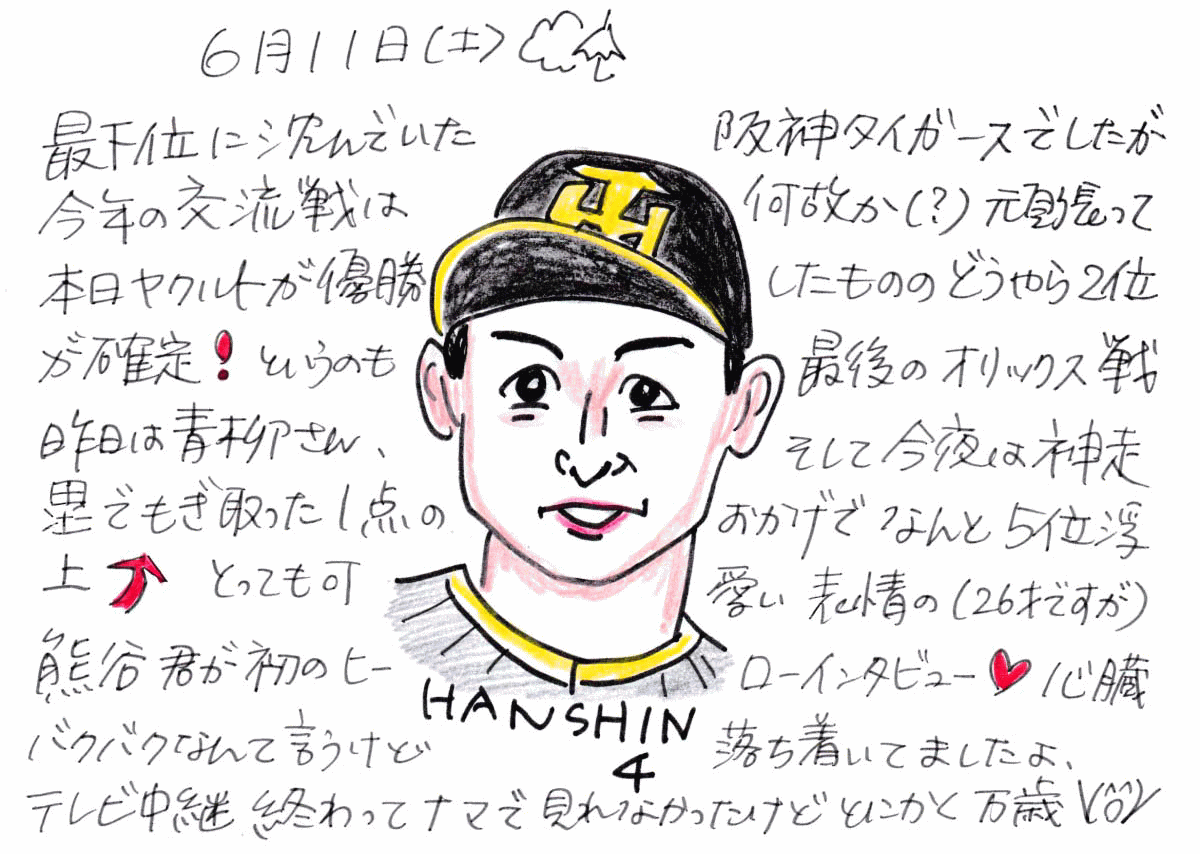 6月11日(土)
最下位に沈んでいた 阪神タイガースでしたが
今年の交流戦は 何故か(?)頑張って
本日ヤクルトが優勝 したもののどうやら2位
が確定!というのも 最後のオリックス戦
昨日は青柳さん、 そして今夜は神走
塁でもぎ取った1点の おかげでなんと5位浮
上 とっても可 愛い表情の(26才ですが)
熊谷君が初のヒー ローインタビュー 心臓
バクバクなんて言うけど 落ち着いてましたよ、
HANSHIN
4
テレビ中継終わってナマで見れなかったけどとにかく万歳\(^o^)/